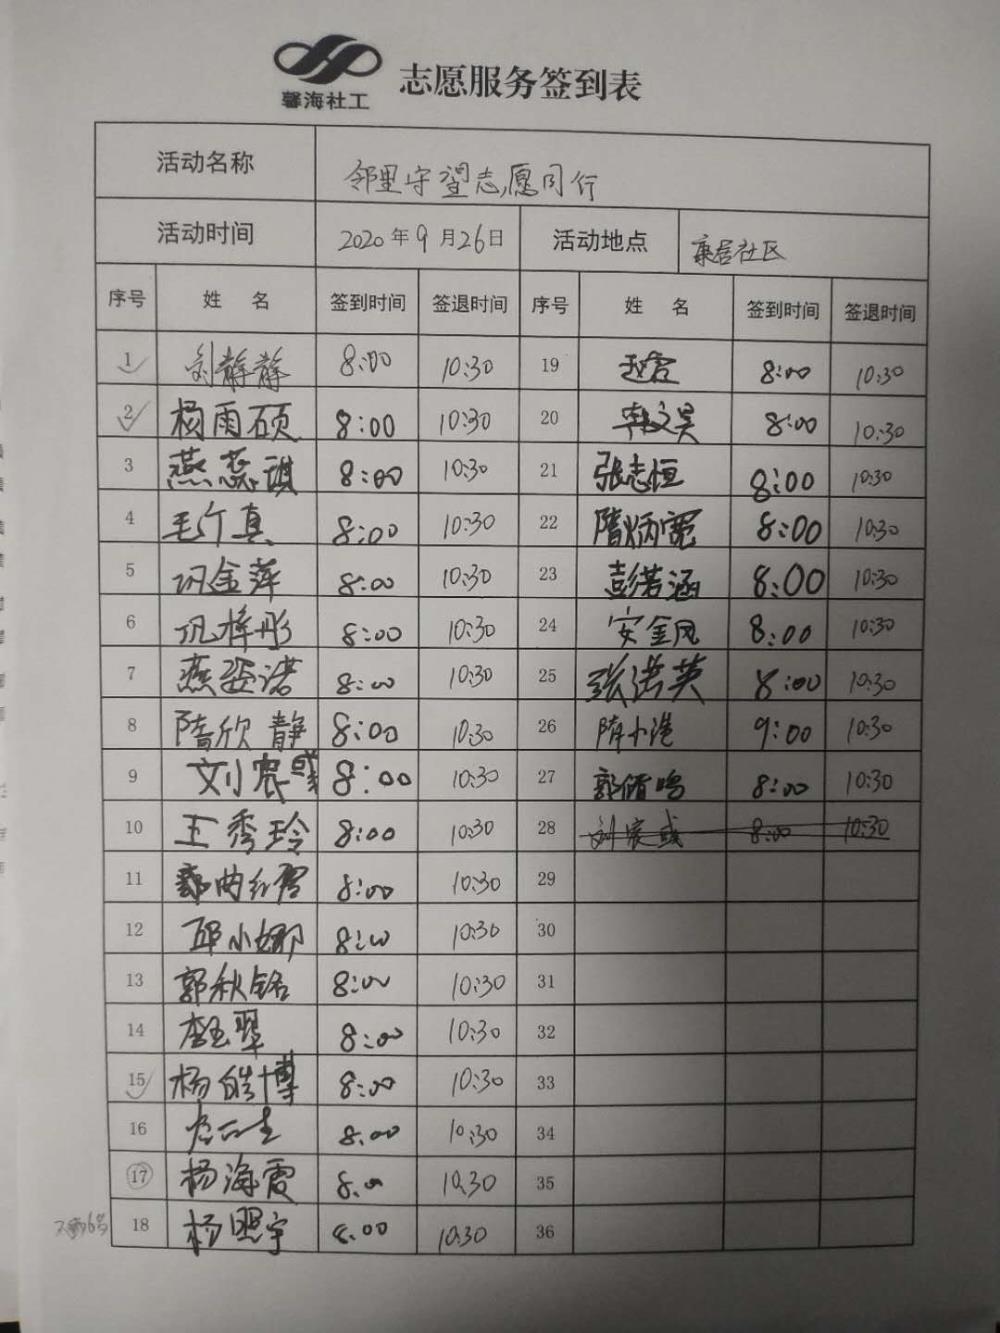 馨海社工
志愿服务签到表
活动名称 邻里守望志愿同行
活动时间 2020年9月26日 活动地点 康居社区
序号 姓 名 签到时间 签退时间 序号 姓 名 签到时间 签退时间
1 刘静静 8:00 10:30 19 赵含 8:00 10:30
2 杨雨硕 8:00 10:30 20 韩文昊 8:00 10:30
3 燕蕊琪 8:00 10:30 21 张志恒 8:00 10:30
4 毛竹真 8:00 10:30 22 隋炳宽 8:00 10:30
5 巩金萍 8:00 10:30 23 彭若涵 8:00 10:30
6 巩梓彤 8:00 10:30 24 安金凤 8:00 10:30
7 燕姿诺 8:00 10:30 25 张洪英 8:00 10:30
8 隋欣静 8:00 10:30 26 隋小港 9:00 10:30
9 刘宸彧 8:00 10:30 27 郭倩鸣 8:00 10:30
10 王秀玲 8:00 10:30 28 刘宸彧 8:00 10:30
11 8:00 10:30 29
12 邱小娜 8:00 10:30 30
13 郭秋铭 8:00 10:30 31
14 李玉翠 8:00 10:30 32
15 杨皓博 8:00 10:30 33
16 8:00 10:30 34
17 杨海霞 8:00 10:30 35
18 杨照宇 8:00 10:30 36